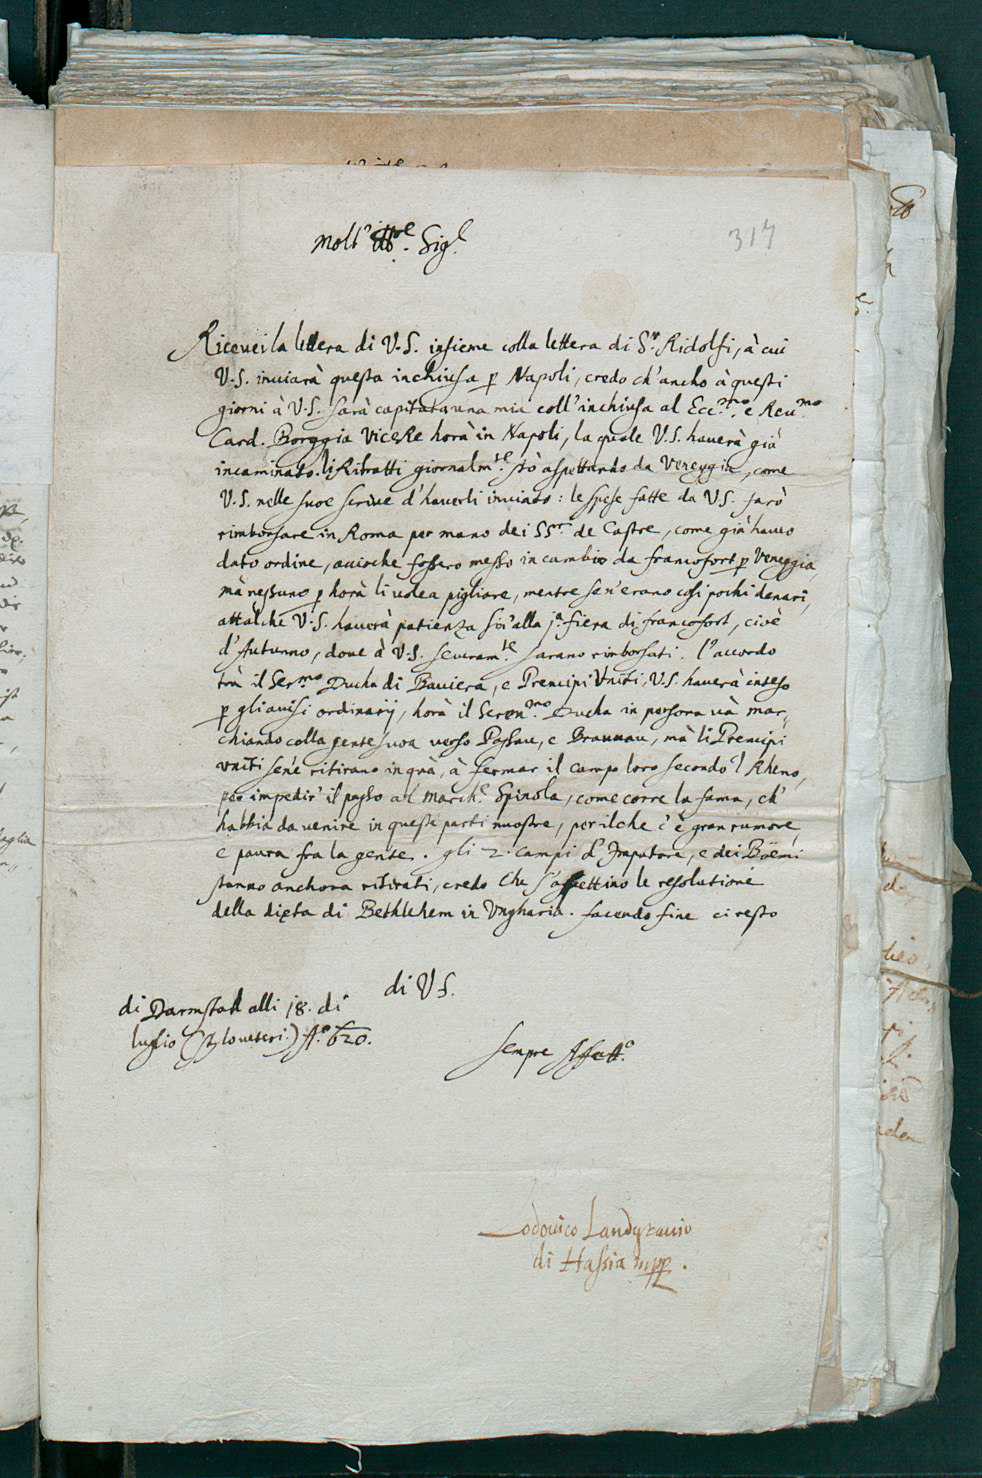 317
Molt' Ill.re Sig.r
Riceuei la lettera di V.S. insieme colla lettera di S.r Ridolfi, à cui
V.S. inuiarà questa inchiusa p Napoli, credo ch'ancho à questi
giorni à V.S. sarà capitata una mia coll'inchiusa al Ecc.mo e Reu.mo
Card. Borggia ViceRe horà in Napoli, la quale V.S. hauerà già
incaminato. li Ritratti giornalm.te stò aspettando da Veneggia, come
V.S. nelle suoe scriue d'hauerli inuiato: le spese fatte da V.S. farò
rimborsare in Roma per mano dei SS.ri de Castre, come già hauuo
dato ordine, accioche fossero messo in cambio da francofort p Veneggia,
mà nessuno p horà li uolea pigliare, mentre sen'erano cosi pochi denari,
attalche V.S. hauerà patienza sin'alla j.a fiera di francofort, cioè
d'Autunno, doue à V.S. securam.te sarano rimborsati. l'accordo
trà il Ser.mo Ducha di Bauiera, e Prencipi Vniti, V.S. hauerà inteso
p gli auisi ordinarij, horà il Seren.mo Ducha in persona uà mar-
chiando colla gente suoa uerso Passau, e Braunau, mà li Prencipi
vniti sen'e ritirano in quà, à fermar il campo loro secondo 'l Rheno,
per impedir' il passo al March.e Spinola, come corre la fama, ch'
habbia da uenire in queste parti nuostre, perilche c'è gran rumore,
e paura fra la gente. gli 2. campi d'Imputore, e dei Böemi
stanno anchora ritirati, credo che s'aspettino le resolutione
della dieta di Bethlehem in Vngharia. facendo fine ci resto
di V.S.
di Darmstad alli 18. di
luglio A.o 620.
Sempre Affett.o
Lodouico Landgrauio
di Hassia mpp.